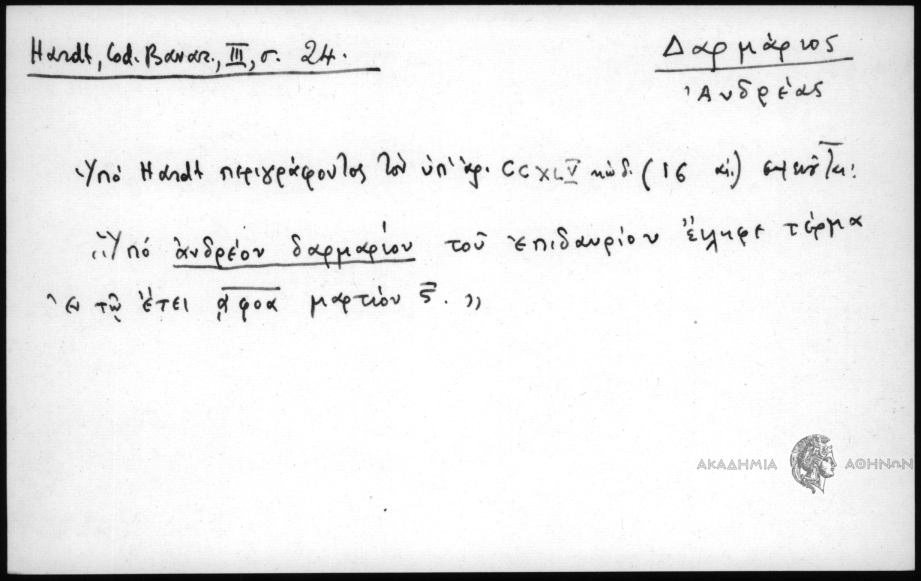 Hardt, Cod. Bavar., III, σ. 24.
Δαρμάριος
Ἀνδρέας
Ὑπό Hardt περιγράφοντος τόν ὑπ' ἀρ. CCXLV κώδ. (16 αἰ.)
"Ὑπό ἀνδρέου δαρμαρίου τοῦ ἐπιδαυρίου ἔληφε τέρμα
ἐν τῷ ἔτει αφοα μαρτίου ϛ."
ΑΚΑΔΗΜΙΑ ΑΘΗΝΩΝ